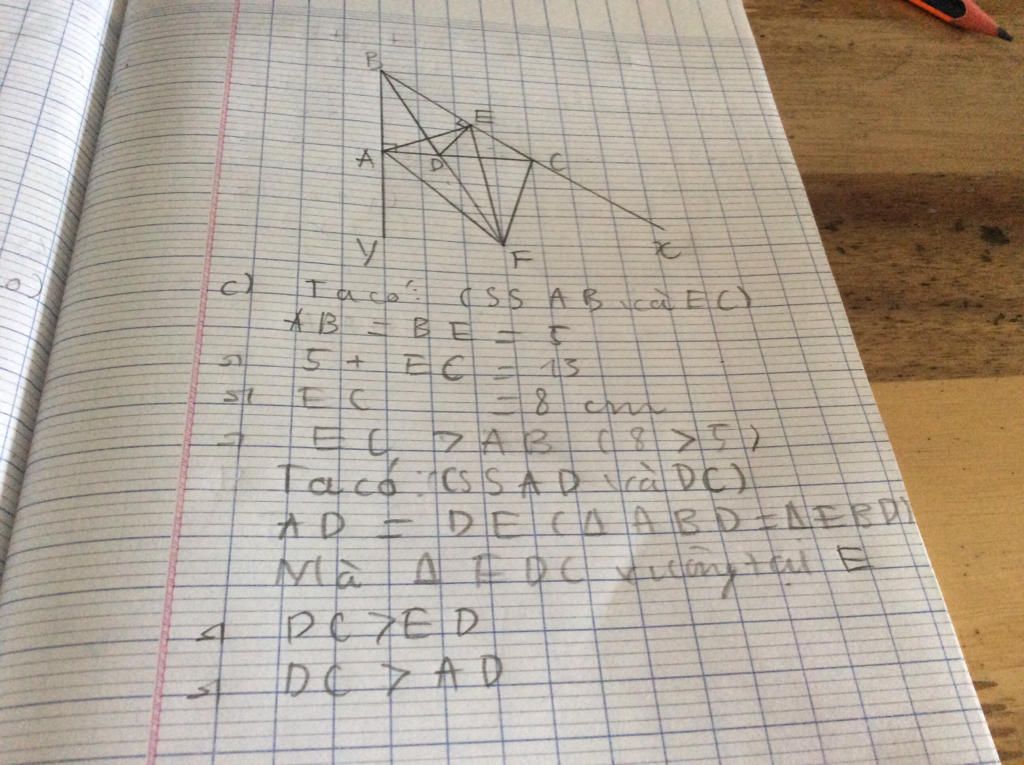 B
E
A
D
C
y
F
x
c) Ta có: (SS AB và EC)
AB = BE = 5
=> 5 + EC = 13
=> EC = 8 cm
=> EC > AB (8 > 5)
Ta có: (SS AD và DC)
AD = DE (Δ ABD = Δ EBD)
Mà Δ EDC vuông tại E
=> DC > ED
=> DC > AD